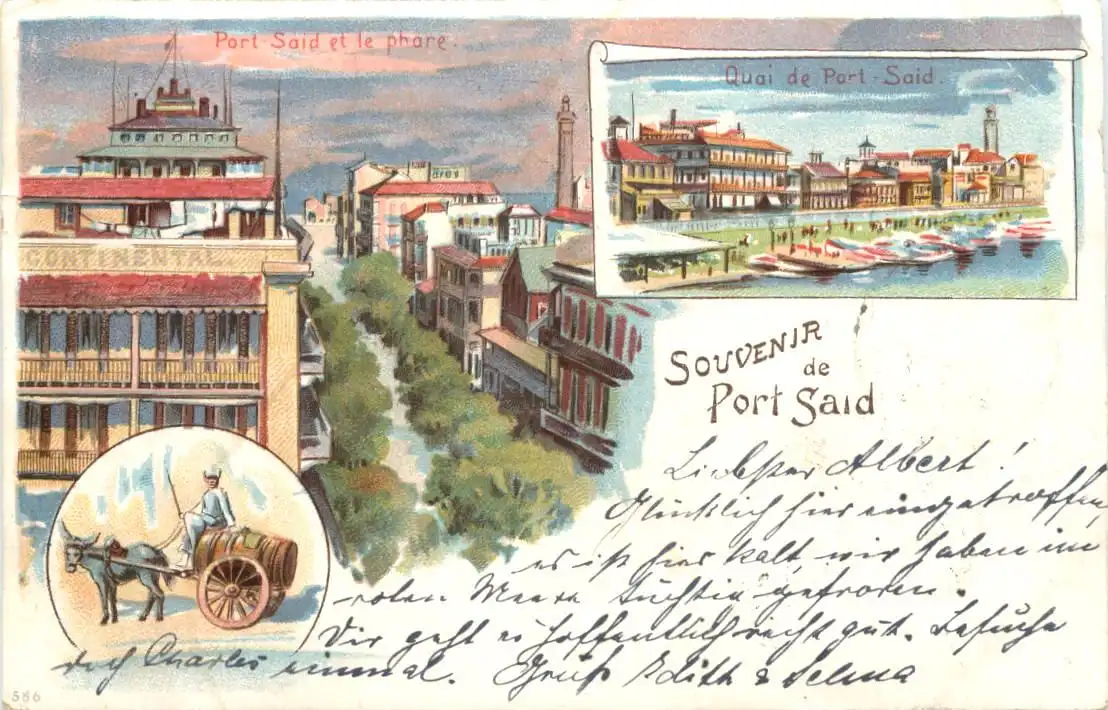 Port Said et le phare.
Quai de Port-Said.
CONTINENTAL
SOUVENIR
de
Port Said
Liebster Albert!
Glücklich hier eingetroffen,
es ist hier kalt, wir haben im
roten Meere tüchtig gefroren.
Dir geht es hoffentlich recht gut. Besuche
doch Charles einmal. Gruß Edith & Selma
586